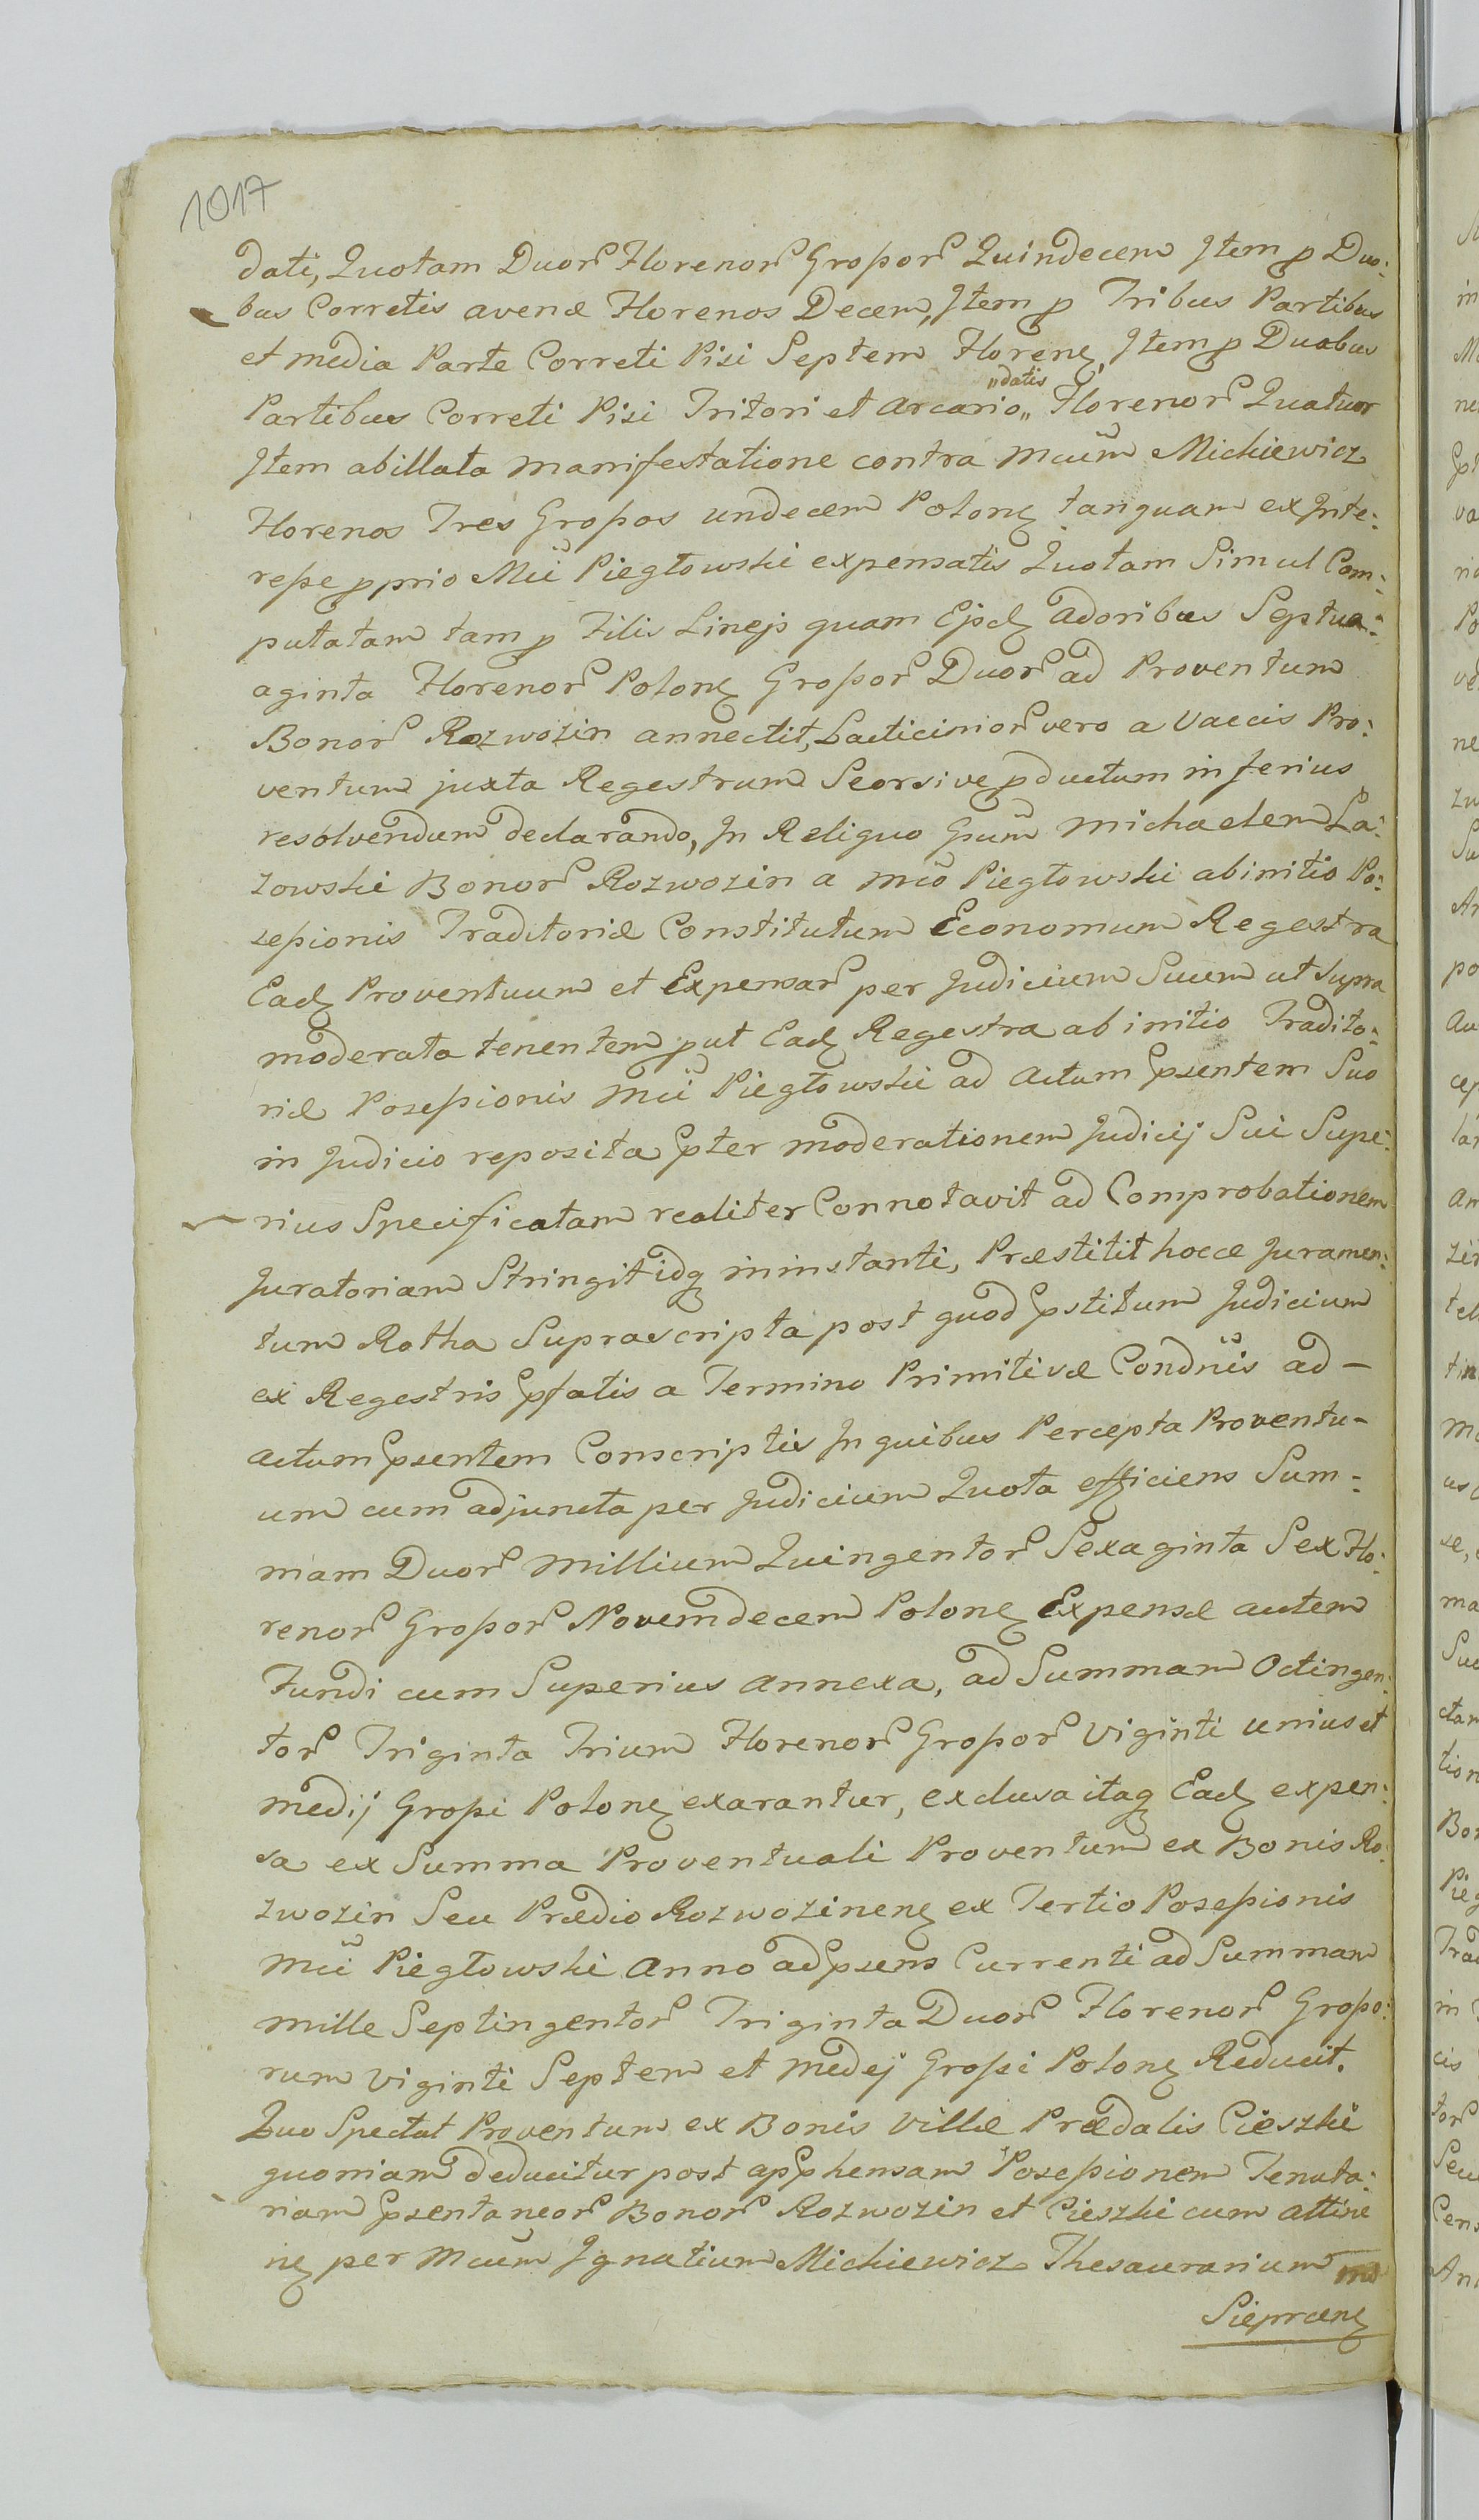 1017
dati, Quotam Duor Florenor Grossor Quindecem Item p Duo:
bus Corretis avenæ Florenos Decem, Item p Tribus Partibus
et media Parte Correti Pisi Septem Floreng, Item p Duobus
"datis
Partibus Correti Pisi Tritori et Arcario„ Florenor Quatuor
Item ab illata manifestatione contra Mcum Michiewicz
Florenos Tres Grossos undecem Polong tanquam ex Inte:
resse pprio Mci Piegłowski expensatis Quotam Simul Com:
putatam tam p Filis Linejs quam Ejsd adoribus Septua:
aginta Florenor Polong Grossor Duor ad Proventum
Bonor Rozwozin annectit, Lacticinior vero a Vaccis Pro:
ventum juxta Regestrum Seorsive pductum inferius
resolvendum declarando, In Reliquo Gnum Michaelem Ła:
zowski Bonor Rozwozin a Mco Piegłowski ab initio Po:
sessionis Traditoriæ Constitutum Economum Regestra
Ead Proventuum et Expensar per Judicium Suum ut Supra
moderata tenentem put Ead Regestra ab initio Tradito:
riæ Posessionis Mci Piegłowski ad Actum psentem Suo
in Judicio reposita pter moderationem Judicij Sui Supe:
rius Specificatam realiter Connotavit ad Comprobationem
Juratoriam Stringit idq in instanti, Præstitit hocce Juramen:
tum Rotha Suprascripta post quod pstitum Judicium
ex Regestris pfatis a Termino Primitivæ Condnis ad –
actum psentem Conscriptis In quibus Percepta Proventu-
um cum adjuncta per Judicium Quota efficiens Sum:
mam Duor Millium Quingentor Sexaginta Sex Flo:
renor Grossor Novemdecem Polong Expensæ autem
Fundi cum Superius annexa, ad Summam Octingen:
tor Triginta Trium Florenor Grossor Viginti unius et
medij Grossi Polong exarantur, exclusa itaq Ead expen:
sa ex Summa Proventuali Proventum ex Bonis Ro:
zwozin Seu Prædio Rozwozineng ex Tertio Posessionis
Mci Piegłowski Anno ad psens Currenti ad Summam
mille Septingentor Triginta Duor Florenor Grosso:
rum Viginti Septem et medej Grossi Polong Reducit.
Quo Spectat Proventum ex Bonis Villæ Prædalis Cieszki
quoniam deducitur post apphensam Posessionem Tenuta:
riam psentaneor Bonor Rozwozin et Cieszki cum attine
ng per Mcum Ignatium Michiewicz Thesaurarium
Sieprceng